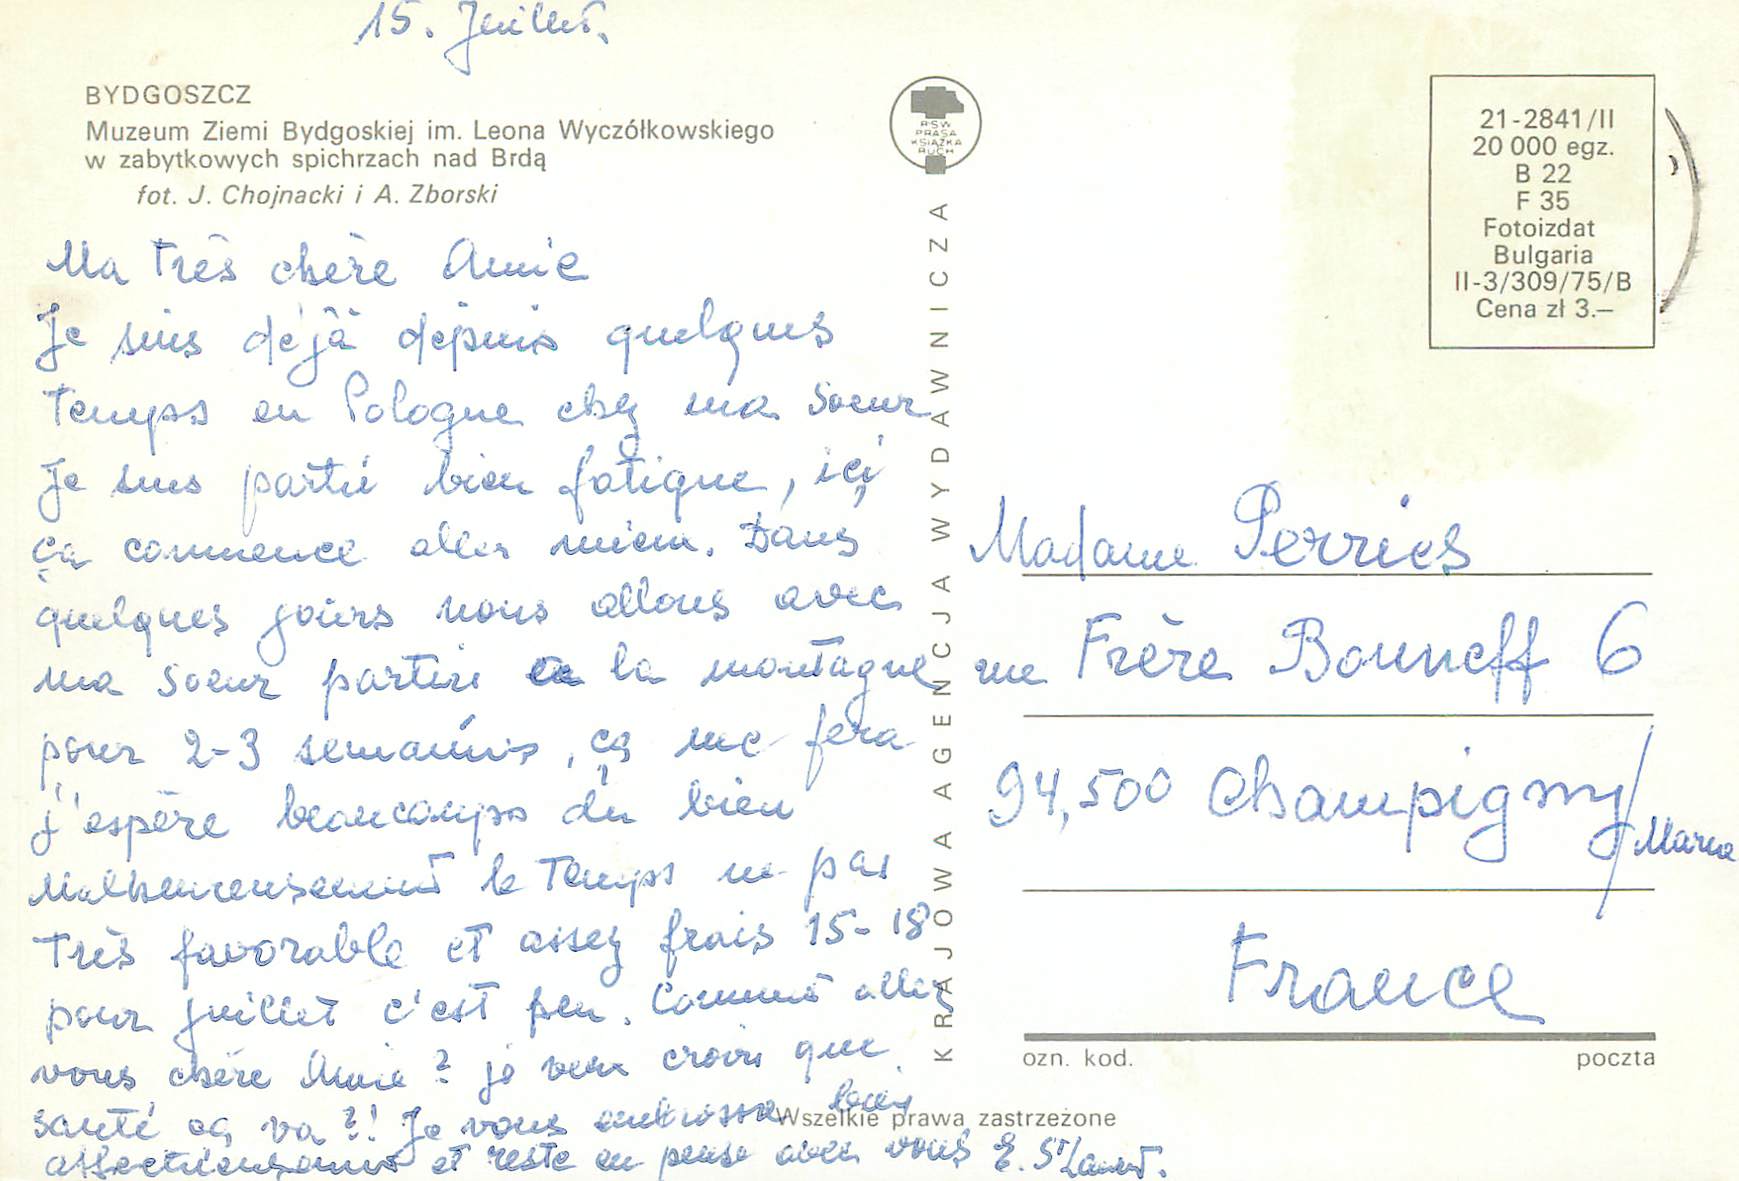 15. Juillet.
BYDGOSZCZ
Muzeum Ziemi Bydgoskiej im. Leona Wyczółkowskiego
w zabytkowych spichrzach nad Brdą
fot. J. Chojnacki i A. Zborski
RSW
PRASA
KSIĄŻKA
RUCH
21-2841/II
20 000 egz.
B 22
F 35
Fotoizdat
Bulgaria
II-3/309/75/B
Cena zł 3.—
Ma très chère Amie
Je suis déjà depuis quelques
temps en Pologne chez ma soeur
Je suis partié bien fatigue, içi
ça commence aller mieux. Dans
quelques jours nous allons avec
ma soeur partir la montagne
pour 2-3 semaines, ça me fera
j'espère beaucoups du bien
Malheureusement le temps ne pas
très favorable et assez frais 15-18
pour juillet c'est peu. Comment allez
vous chère Amie? je veux croire que
santé ça va?! Je vous embrasse bien
affectieusement et reste en pense avec vous E.
KRAJOWA AGENCJA WYDAWNICZA
Madame Perries
rue Frère Bonneff 6
94,500 Champigny/Marne
France
ozn. kod.
poczta
Wszelkie prawa zastrzeżone